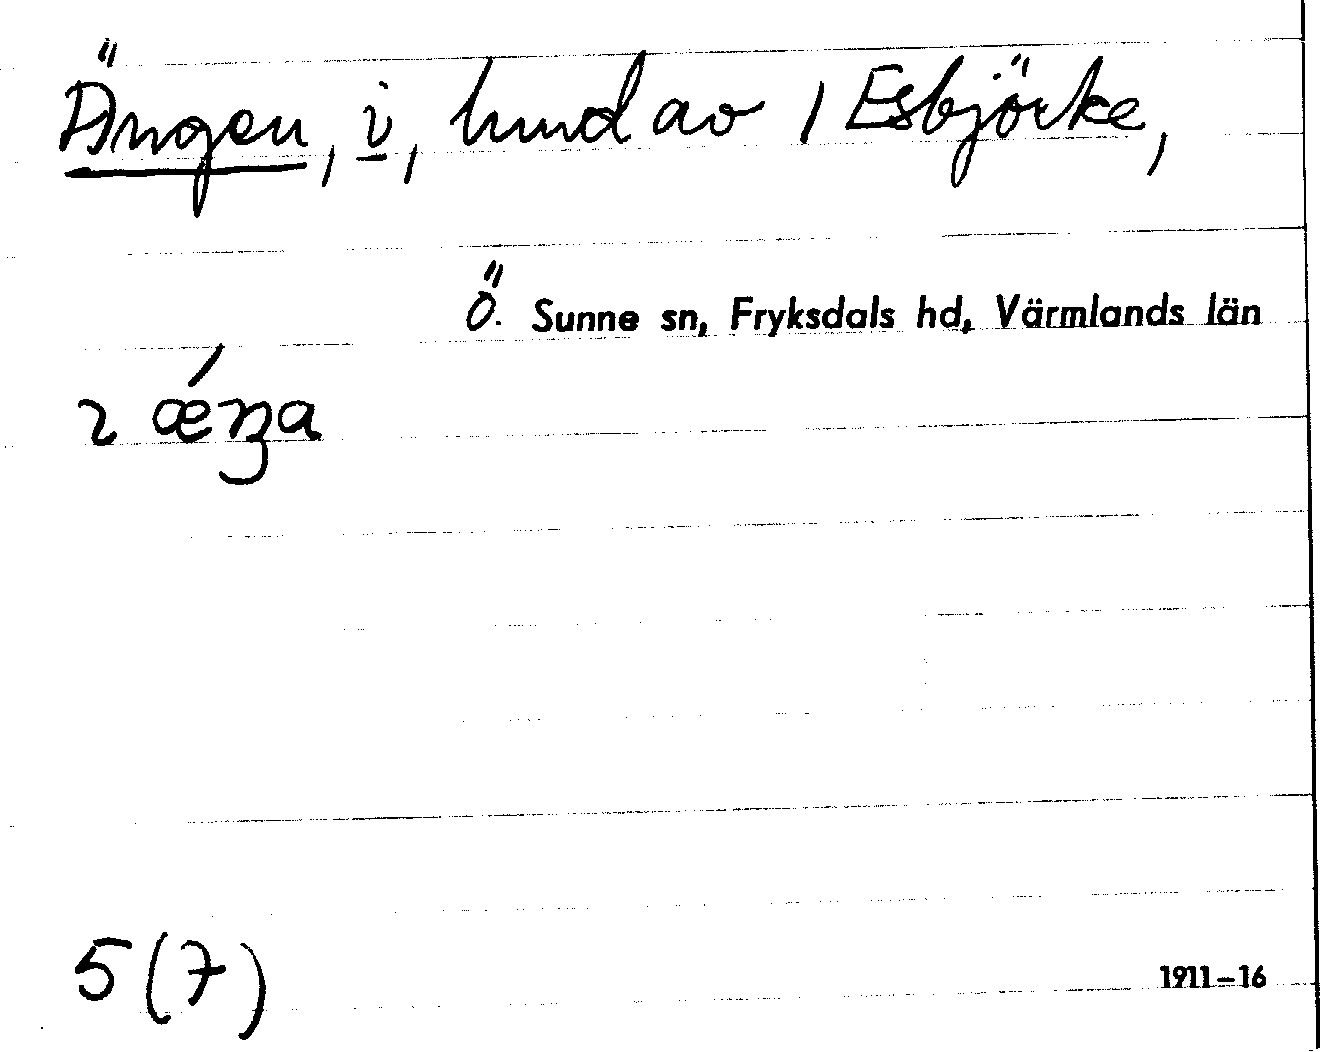 Ängen, i, hmd av 1 Esbjörke,
Ö. Sunne sn, Fryksdals hd, Värmlands län
ɩ ǽŋa
5(7)
1911–16